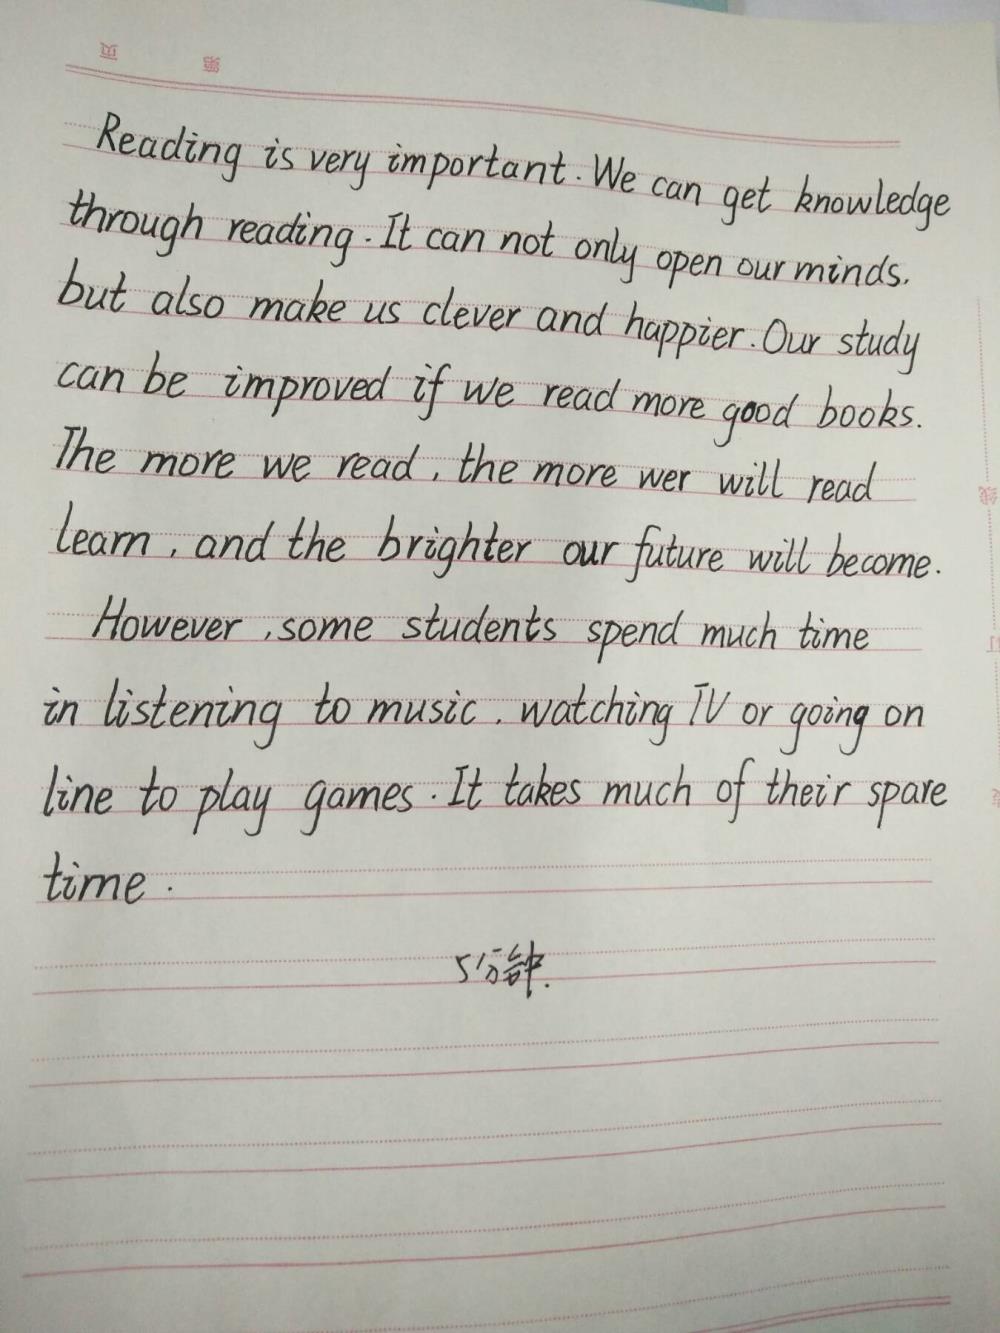 页 第
Reading is very important. We can get knowledge
through reading. It can not only open our minds.
but also make us clever and happier. Our study
can be improved if we read more good books.
The more we read, the more wer will read
learn, and the brighter our future will become.
However, some students spend much time
in listening to music, watching TV or going on
line to play games. It takes much of their spare
time.
5分钟.
线
订